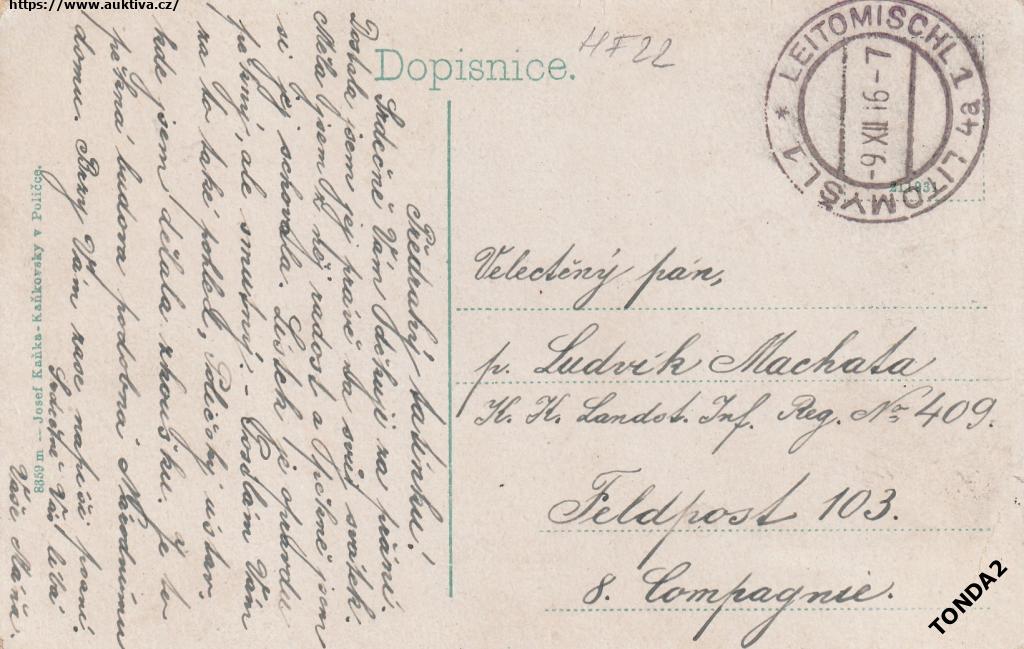 https://www.auktiva.cz/
Dopisnice.
HF22
* LEITOMISCHL 1 4a LITOMYŠL 1
-9 XII 16-7
211931
Předrahý tatínku!
Srdečně Vám děkuji za přání.
Dostala jsem jej právě na svůj svátek.
Měla jsem z něj radost a pěkně jsem
si jej schovala. Lístek je opravdu
pěkný, ale smutný. - Posílám Vám
za to také pohled, Poličský ústav.
kde jsem dělala zkoušku. Je to
pěkná budova podobná Národnímu
domu. Brzy Vám zase napíši psaní.
Srdečně Vás líbá
Vaše Máňa.
8359 m — Josef Kaňka-Kaňkovský v Poličce.
Velectěný pán,
p. Ludvík Machata
K. K. Landst. Inf. Reg. No 409.
Feldpost 103.
8. Compagnie.
TONDA2